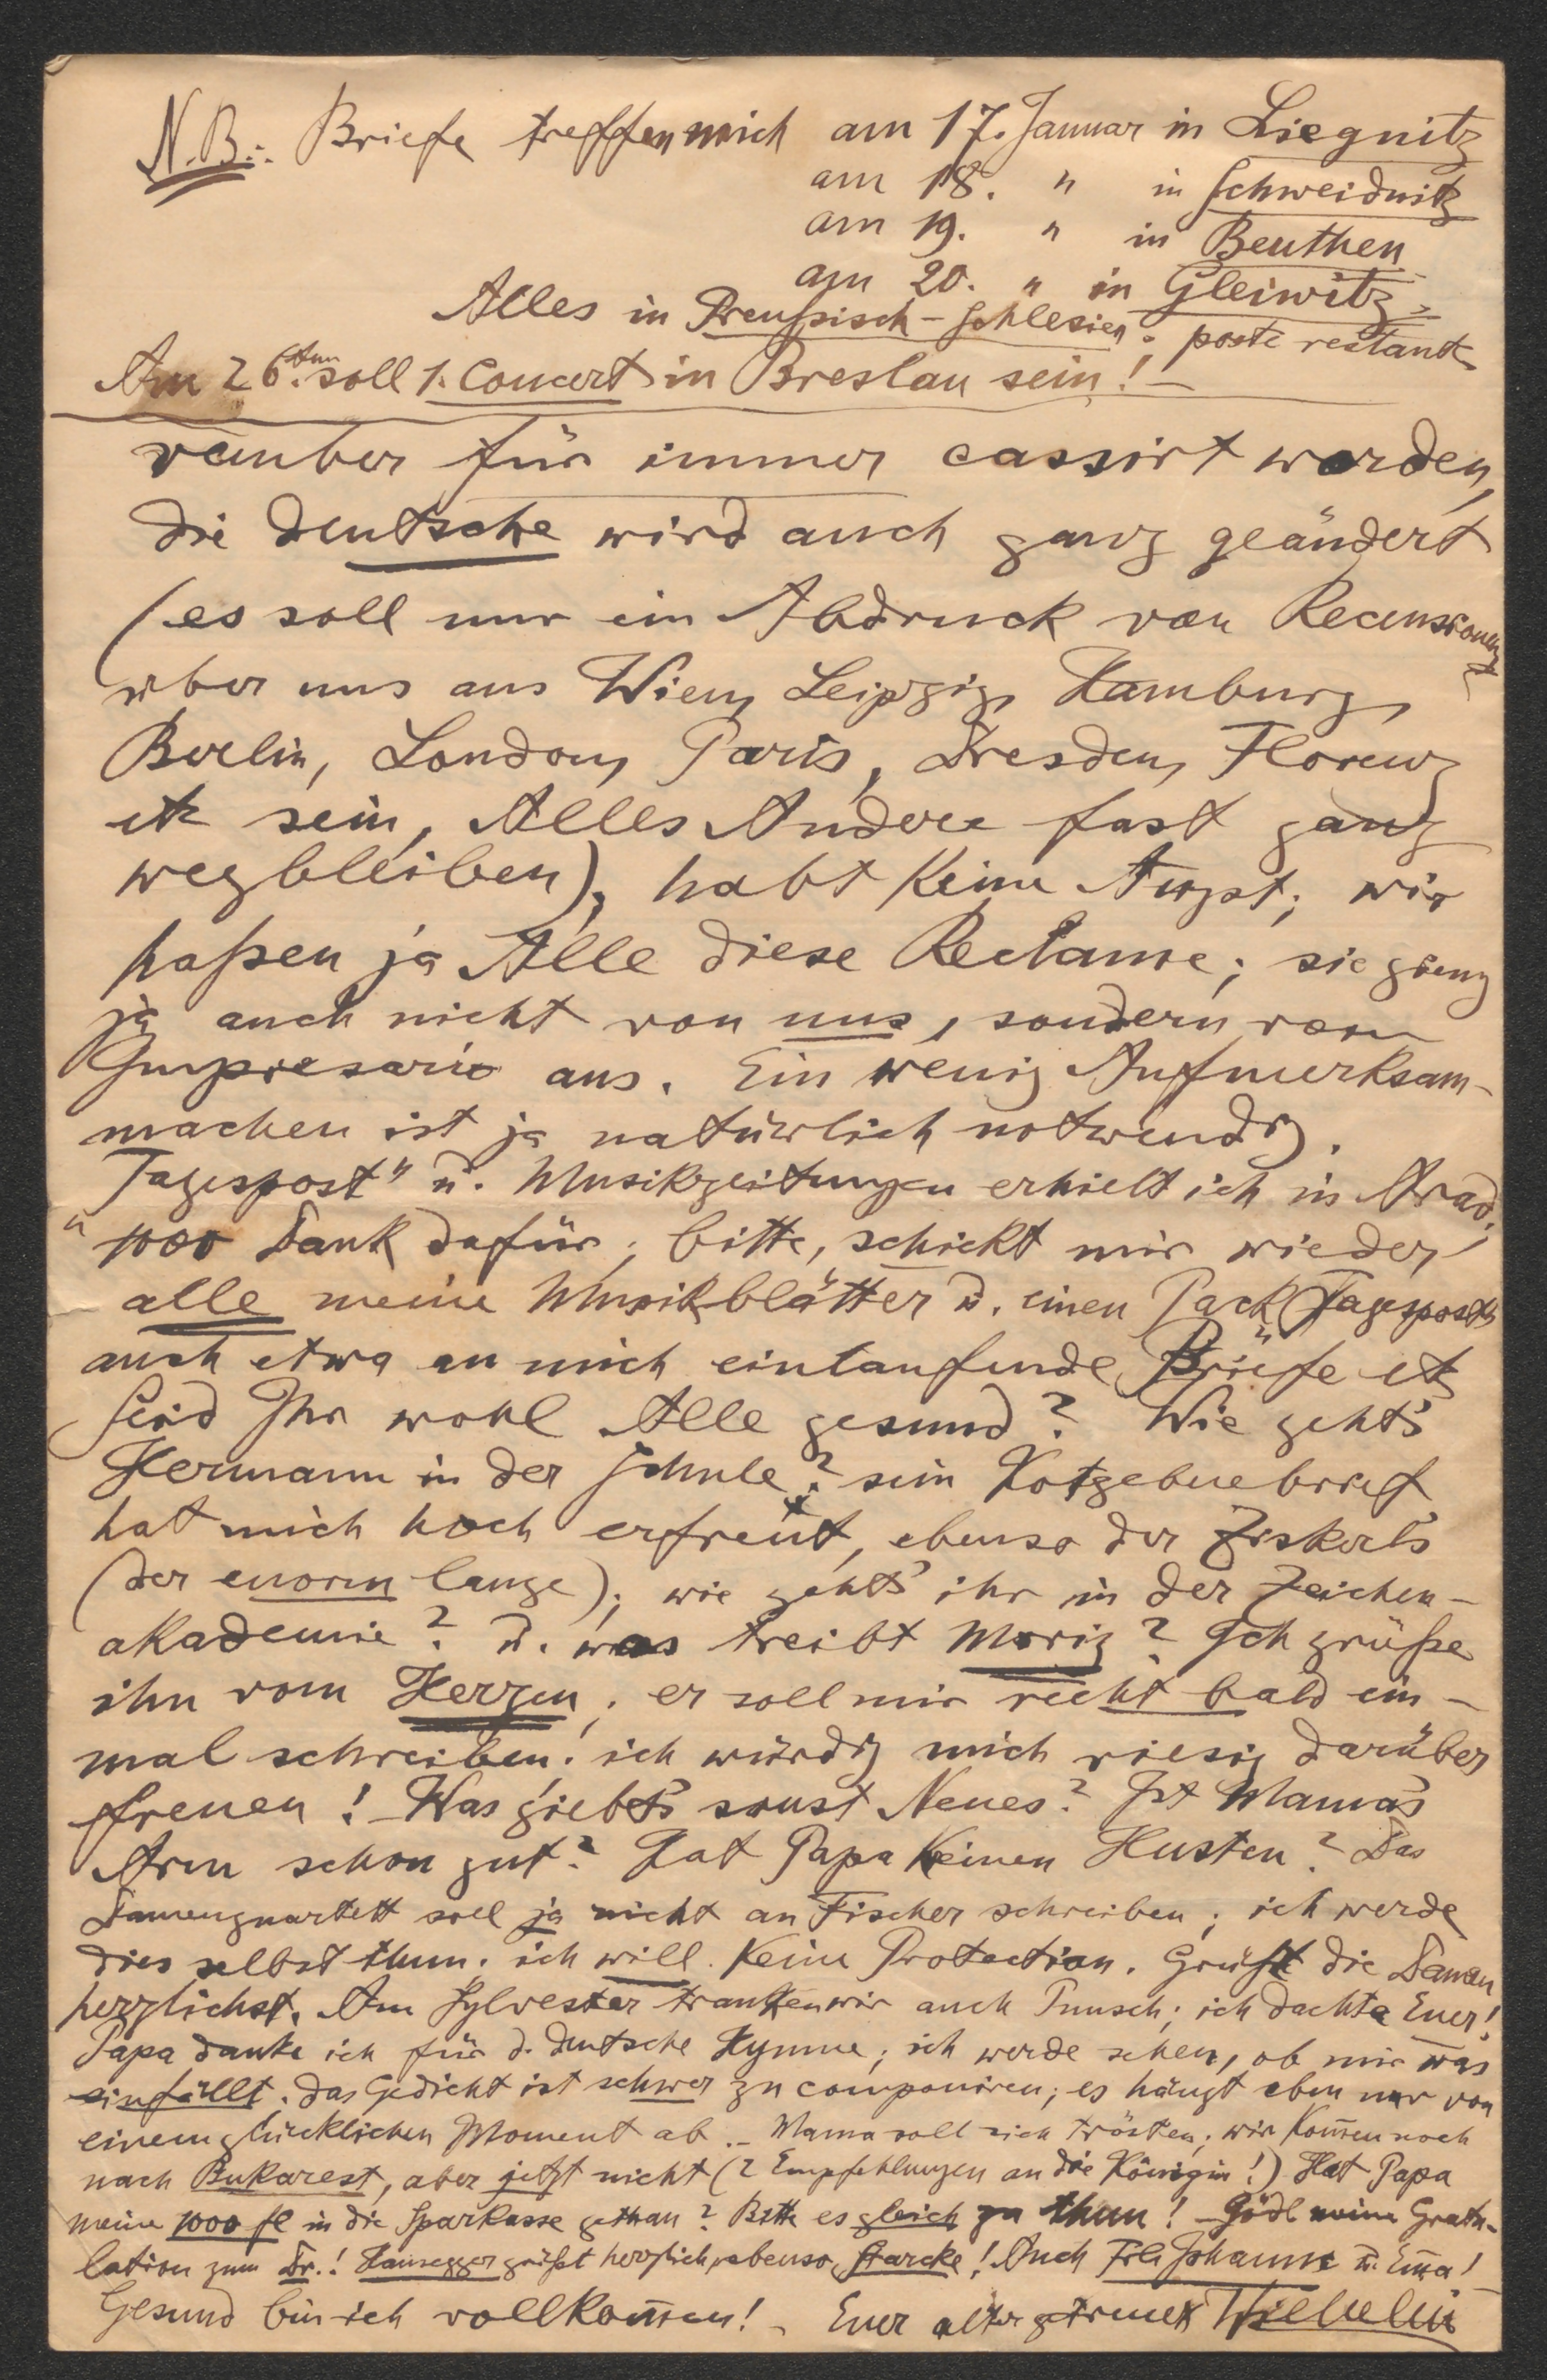 N.B.: Briefe treffen mich am 17. Januar in Liegnitz
am 18. " in Schweidnitz
am 19. " in Beuthen
am 20. " in Gleiwitz
Alles in Preußisch-Schlesien: poste restante
Am 26ten soll 1. Concert in Breslau sein! –
vember für immer cassirt worden,
die deutsche wird auch ganz geändert
(es soll nur ein Abdruck von Recensionen
über uns aus Wien, Leipzig, Hamburg,
Berlin, London, Paris, Dresden, Florenz
etc sein, Alles Andere fast ganz
wegbleiben); habt keine Angst; wir
haßen ja Alle diese Reclame; sie gieng
ja auch nicht von uns, sondern vom
Impresario aus. Ein wenig Aufmerksam-
machen ist ja natürlich notwendig.
„Tagespost" u. Musikzeitungen erhielt ich in Arad;
1000 Dank dafür; bitte, schickt mir wieder
alle meine Musikblätter u. einen Pack Tagespost,
auch etwa an mich einlaufende Briefe etc
Seid Ihr wohl Alle gesund? Wie geht's
Hermann in der Schule? sein Kotzebuebrief
hat mich hoch erfreut, ebenso der Ziskerls
(der enorm lange); wie geht's ihr in der Zeichen-
akademie? u. was treibt Moriz? Ich grüße
ihn vom Herzen; er soll mir recht bald ein-
mal schreiben; ich würde mich riesig darüber
freuen! Was giebt's sonst Neues? Ist Mama's
Arm schon gut? Hat Papa keinen Husten? Das
Damenquartett soll ja nicht an Fischer schreiben; ich werde
dies selbst thun; ich will keine Protection. Grüßt die Damen
herzlichst. Am Sylvester tranken wir auch Punsch; ich dachte Euer!
Papa danke ich für d. deutsche Hymne; ich werde sehen, ob mir was
einfällt; das Gedicht ist schwer zu componiren; es hängt eben nur von
einem glücklichen Moment ab. – Mama soll sich trösten; wir kom̄en noch
nach Bukarest, aber jetzt nicht (2 Empfehlungen an die Königin!) Hat Papa
meine 1000 fl in die Sparkasse gethan? Bitte es gleich zu thun! – Gödl meine Gratu-
lation zum Dr.! Hausegger grüßt herzlich, ebenso Starcke! Auch Frl. Johanna u. Em̄a!
Gesund bin ich vollkom̄en! – Euer alter getreuer Wilhelm